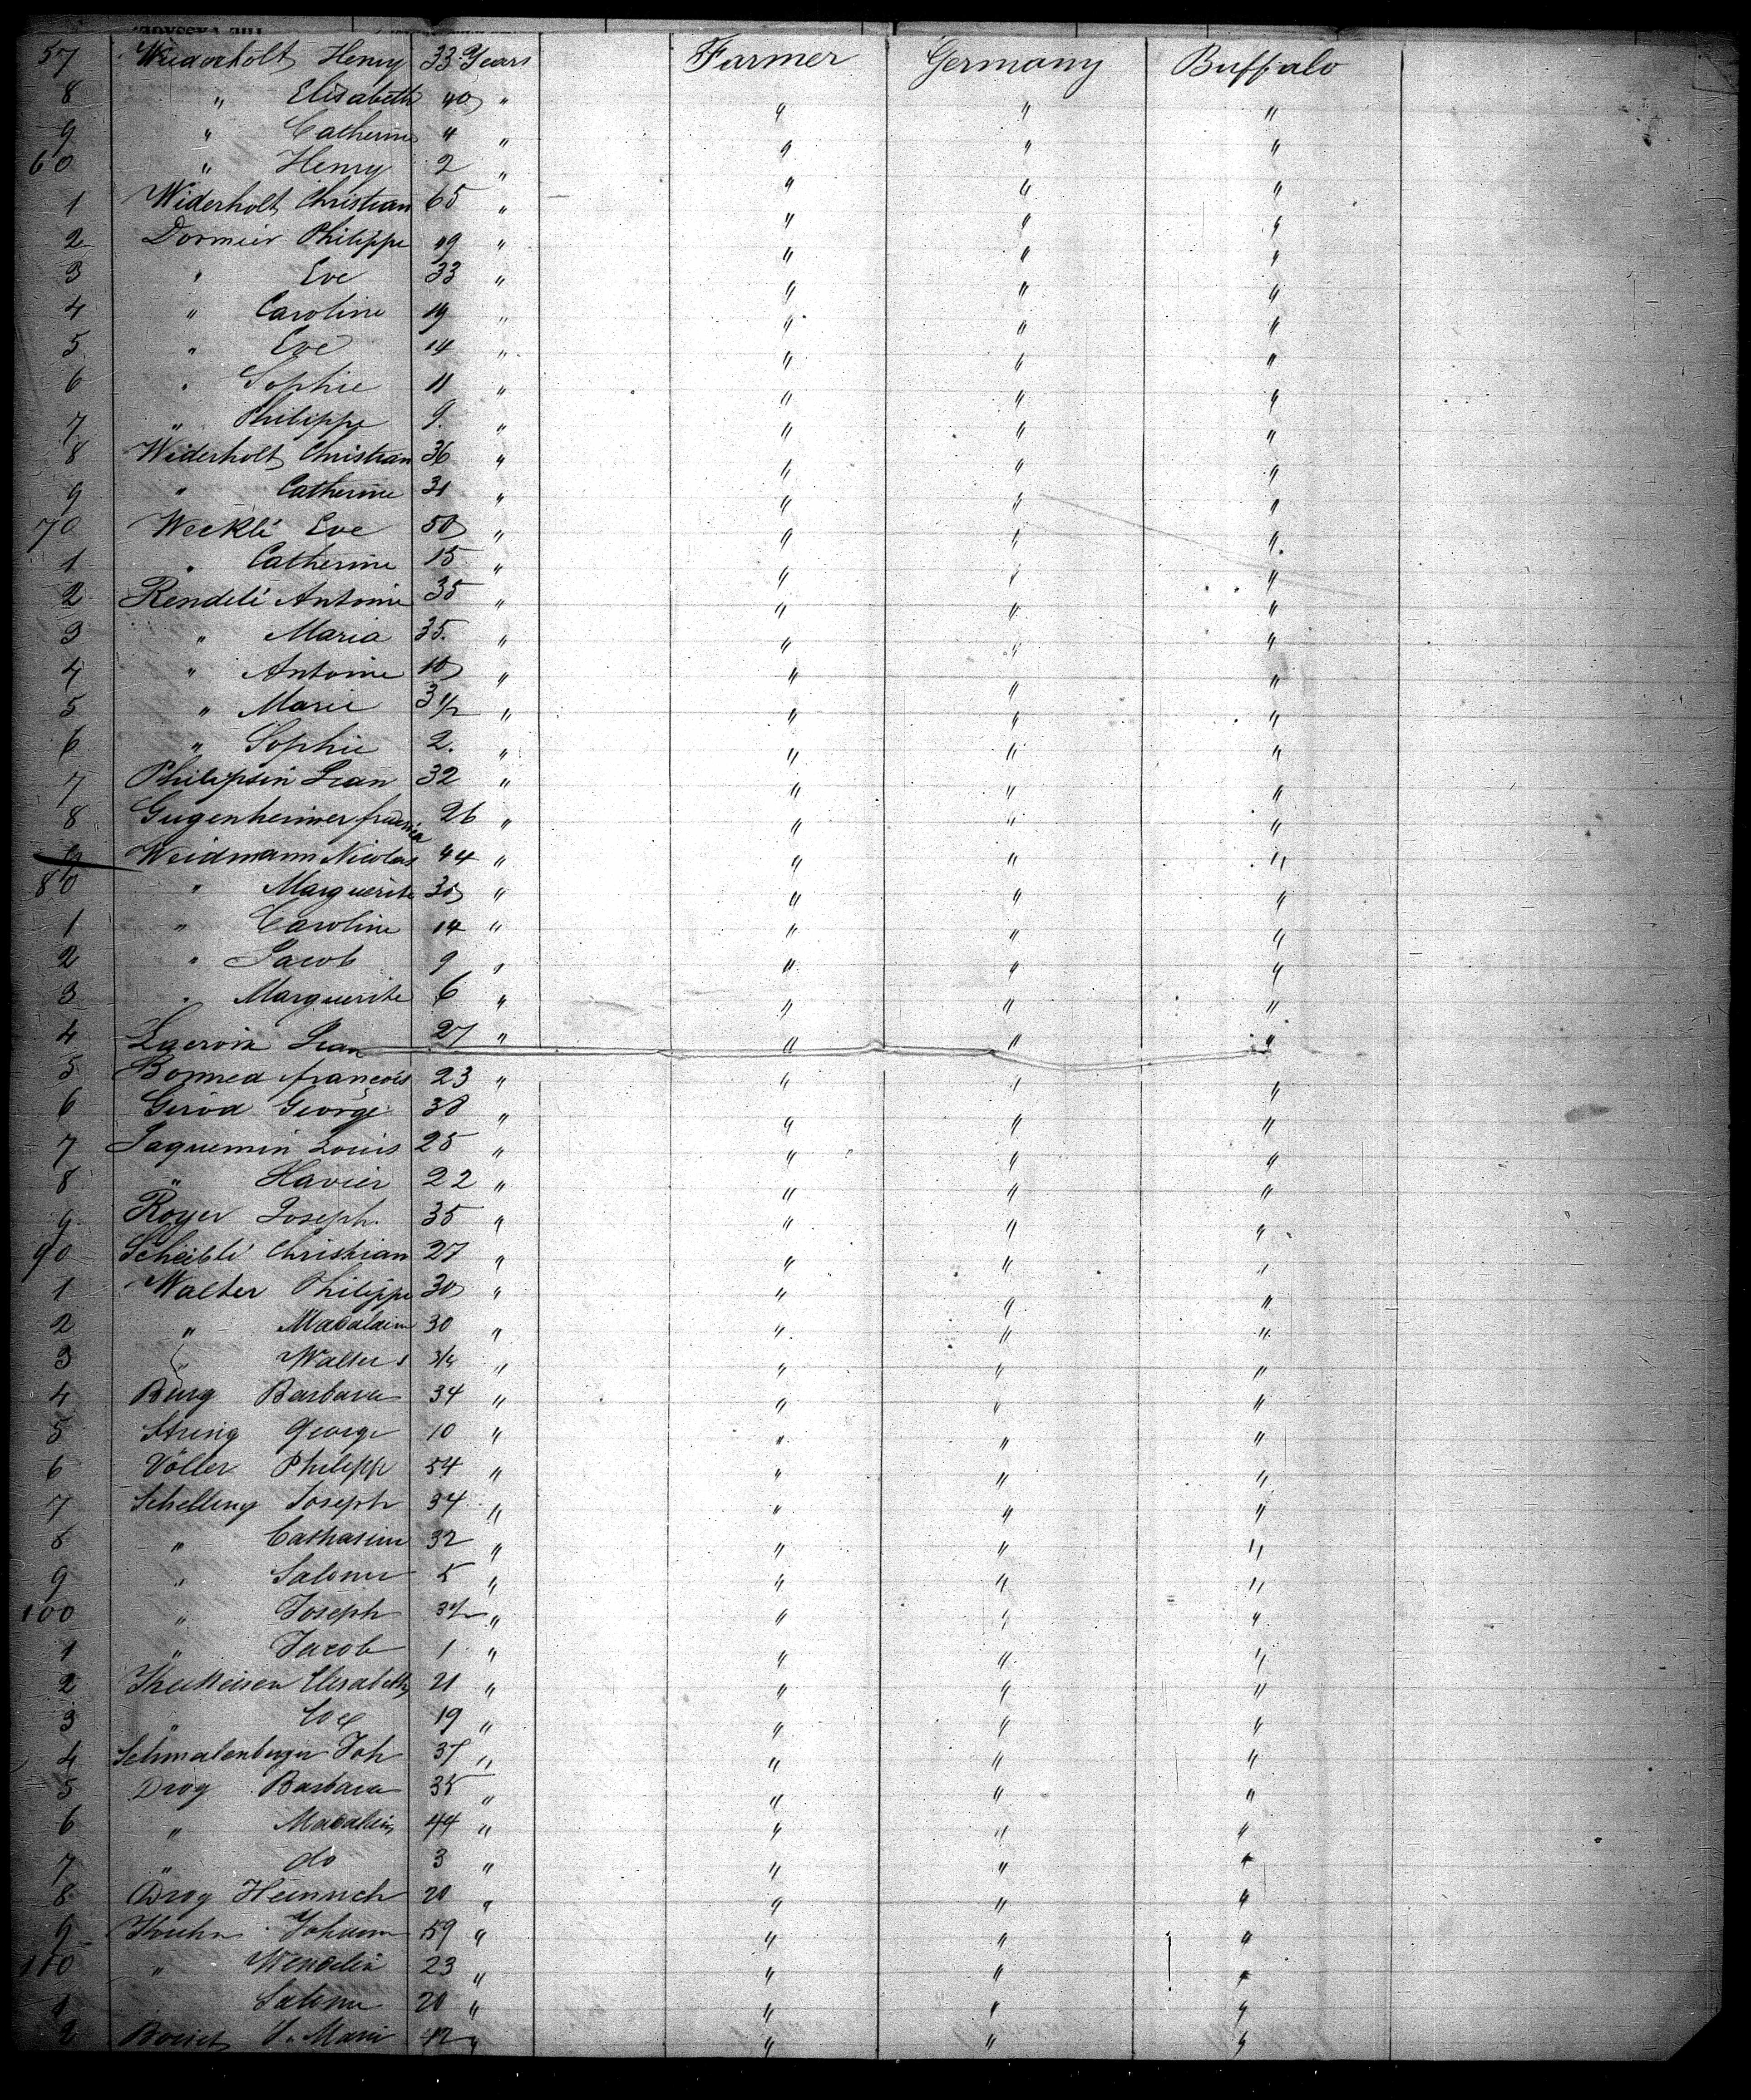 57 Wiederholt Henry 33 Years Farmer Germany Buffalo
8 " Elisabeth 40 " " " "
9 " Catherine 4 " " " "
60 " Henry 2 " " " "
1 Widerholt Christian 65 " " " "
2 Dormeir Philippe 49 " " " "
3 " Eve 33 " " " "
4 " Caroline 19 " " " "
5 " Eve 14 " " " "
6 " Sophie 11 " " " "
7 " Philippe 9. " " " "
8 Widerholt Christian 36 " " " "
9 " Catherine 31 " " " "
70 Weckli Eve 50 " " " "
1 " Catherine 15 " " " "
2 Rendeli Antoine 35 " " " "
3 " Maria 35. " " " "
4 " Antoine 10 " " " "
5 " Marie 3 1/2 " " " "
6 " Sophie 2. " " " "
7 Philipsin Jean 32 " " " "
8 Gugenheimer 26 " " " "
9 Weidmann Nicolas 44 " " " "
80 " Marguerite 30 " " " "
1 " Caroline 14 " " " "
2 " Jacob 9 " " " "
3 " Marguerite 6 " " " "
4 Lacroix Jean 27 " " " "
5 françois 23 " " " "
6 Gerod George 38 " " " "
7 Jaquemin Louis 25 " " " "
8 " Havier 22 " " " "
9 Royer Joseph. 35 " " " "
90 Scheibli Christian 27 " " " "
1 Walter Philippe 30 " " " "
2 " Madalain 30 " " " "
3 " Walter 3/4 " " " "
4 Burg Barbara 34 " " " "
5 String George 10 " " " "
6 Völler Philipp 54 " " " "
7 Schelling Joseph 34 " " " "
8 " Catharine 32 " " " "
9 " Salome 5 " " " "
100 " Joseph 3 1/2 " " " "
1 " Jacob 1 " " " "
2 Elisabeth 21 " " " "
3 " 19 " " " "
4 Schmalenberger Joh 37 " " " "
5 Drog Barbara 35 " " " "
6 " Madalein 44 " " " "
7 " do 3 " " " "
8 Drog Heinrich 20 " " " "
9 Kuhn Johann 59 " " " "
110 " Wendelin 23 " " " "
1 Salome 20 " " " "
2 J. Marie 42 " " " "